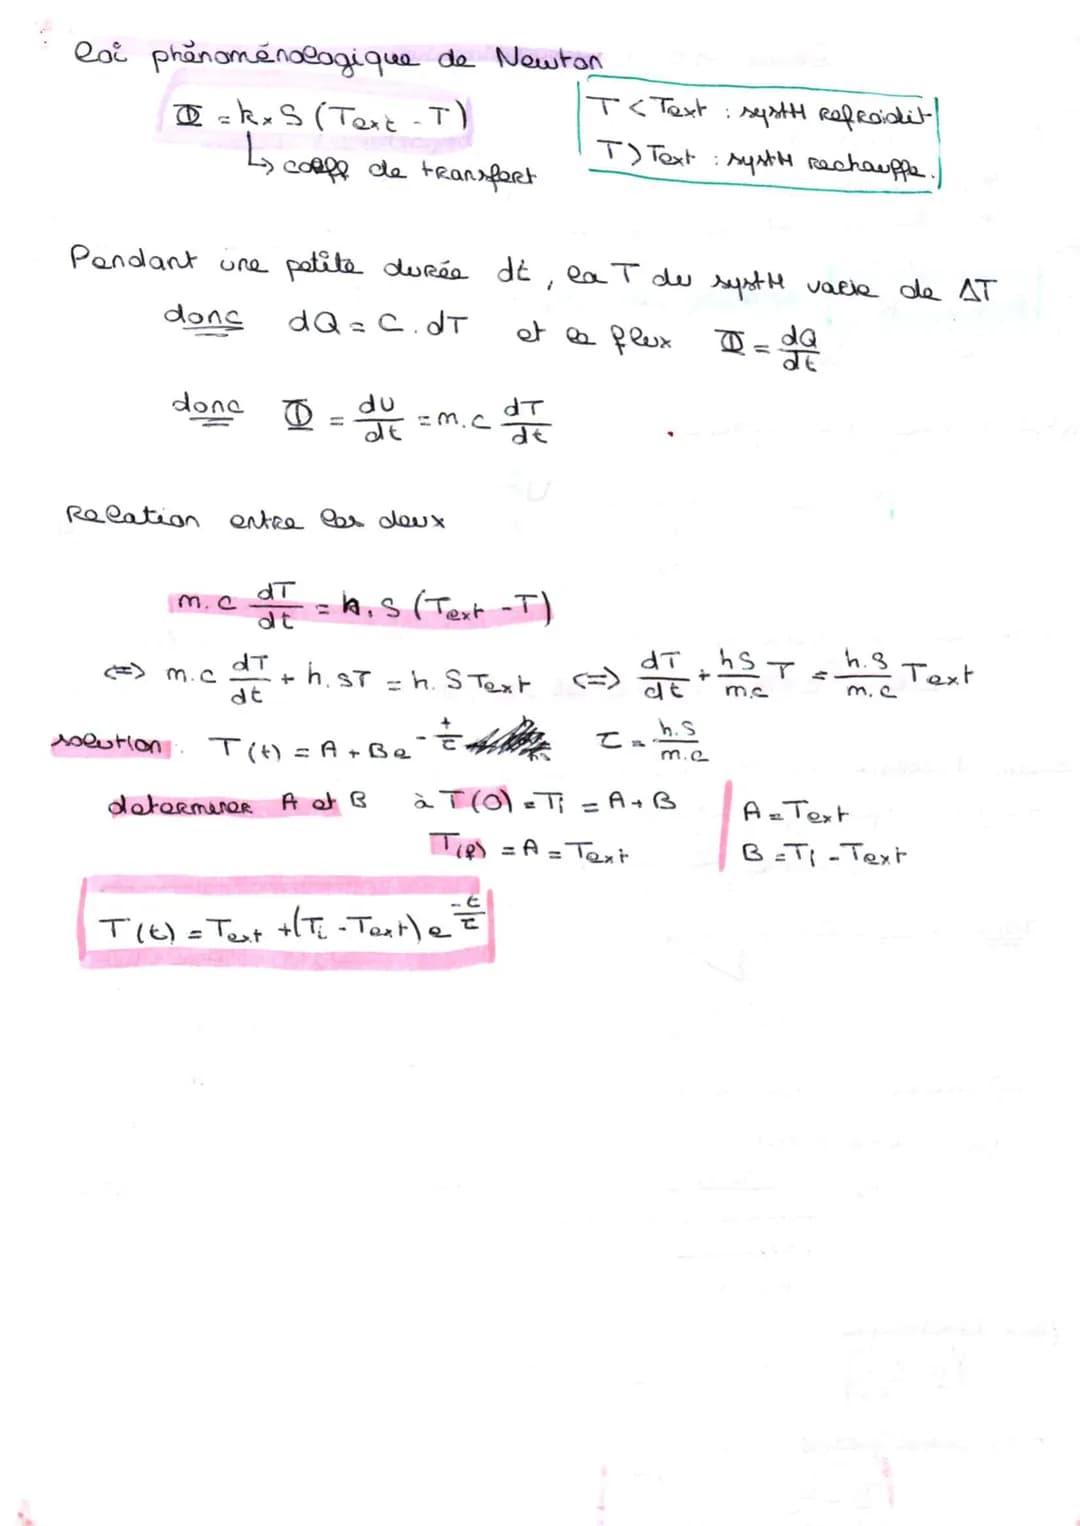 loi phénoménologique de Newton
Φ = k × S (Text - T)
↳ coeff de transfert
T < Text : systH refroidit
T > Text : systH rechauffe.
Pendant une petite durée dt, la T du systH varie de ΔT
donc dQ = C. dT et le flux Φ = dQ/dt
donc Φ = dU/dt = m.c dT/dt
Relation entre les deux
m.c dT/dt = h.S (Text - T)
<=> m.c dT/dt + h.ST = h.S Text <=> dT/dt + hS/m.c T = h.S/m.c Text
solution : T(t) = A + Be^-t/τ τ = h.S/m.c
determiner A et B à T(0) = Ti = A + B
T(f) = A = Text
A = Text
B = Ti - Text
T(t) = Text + (Ti - Text) e^-t/τ